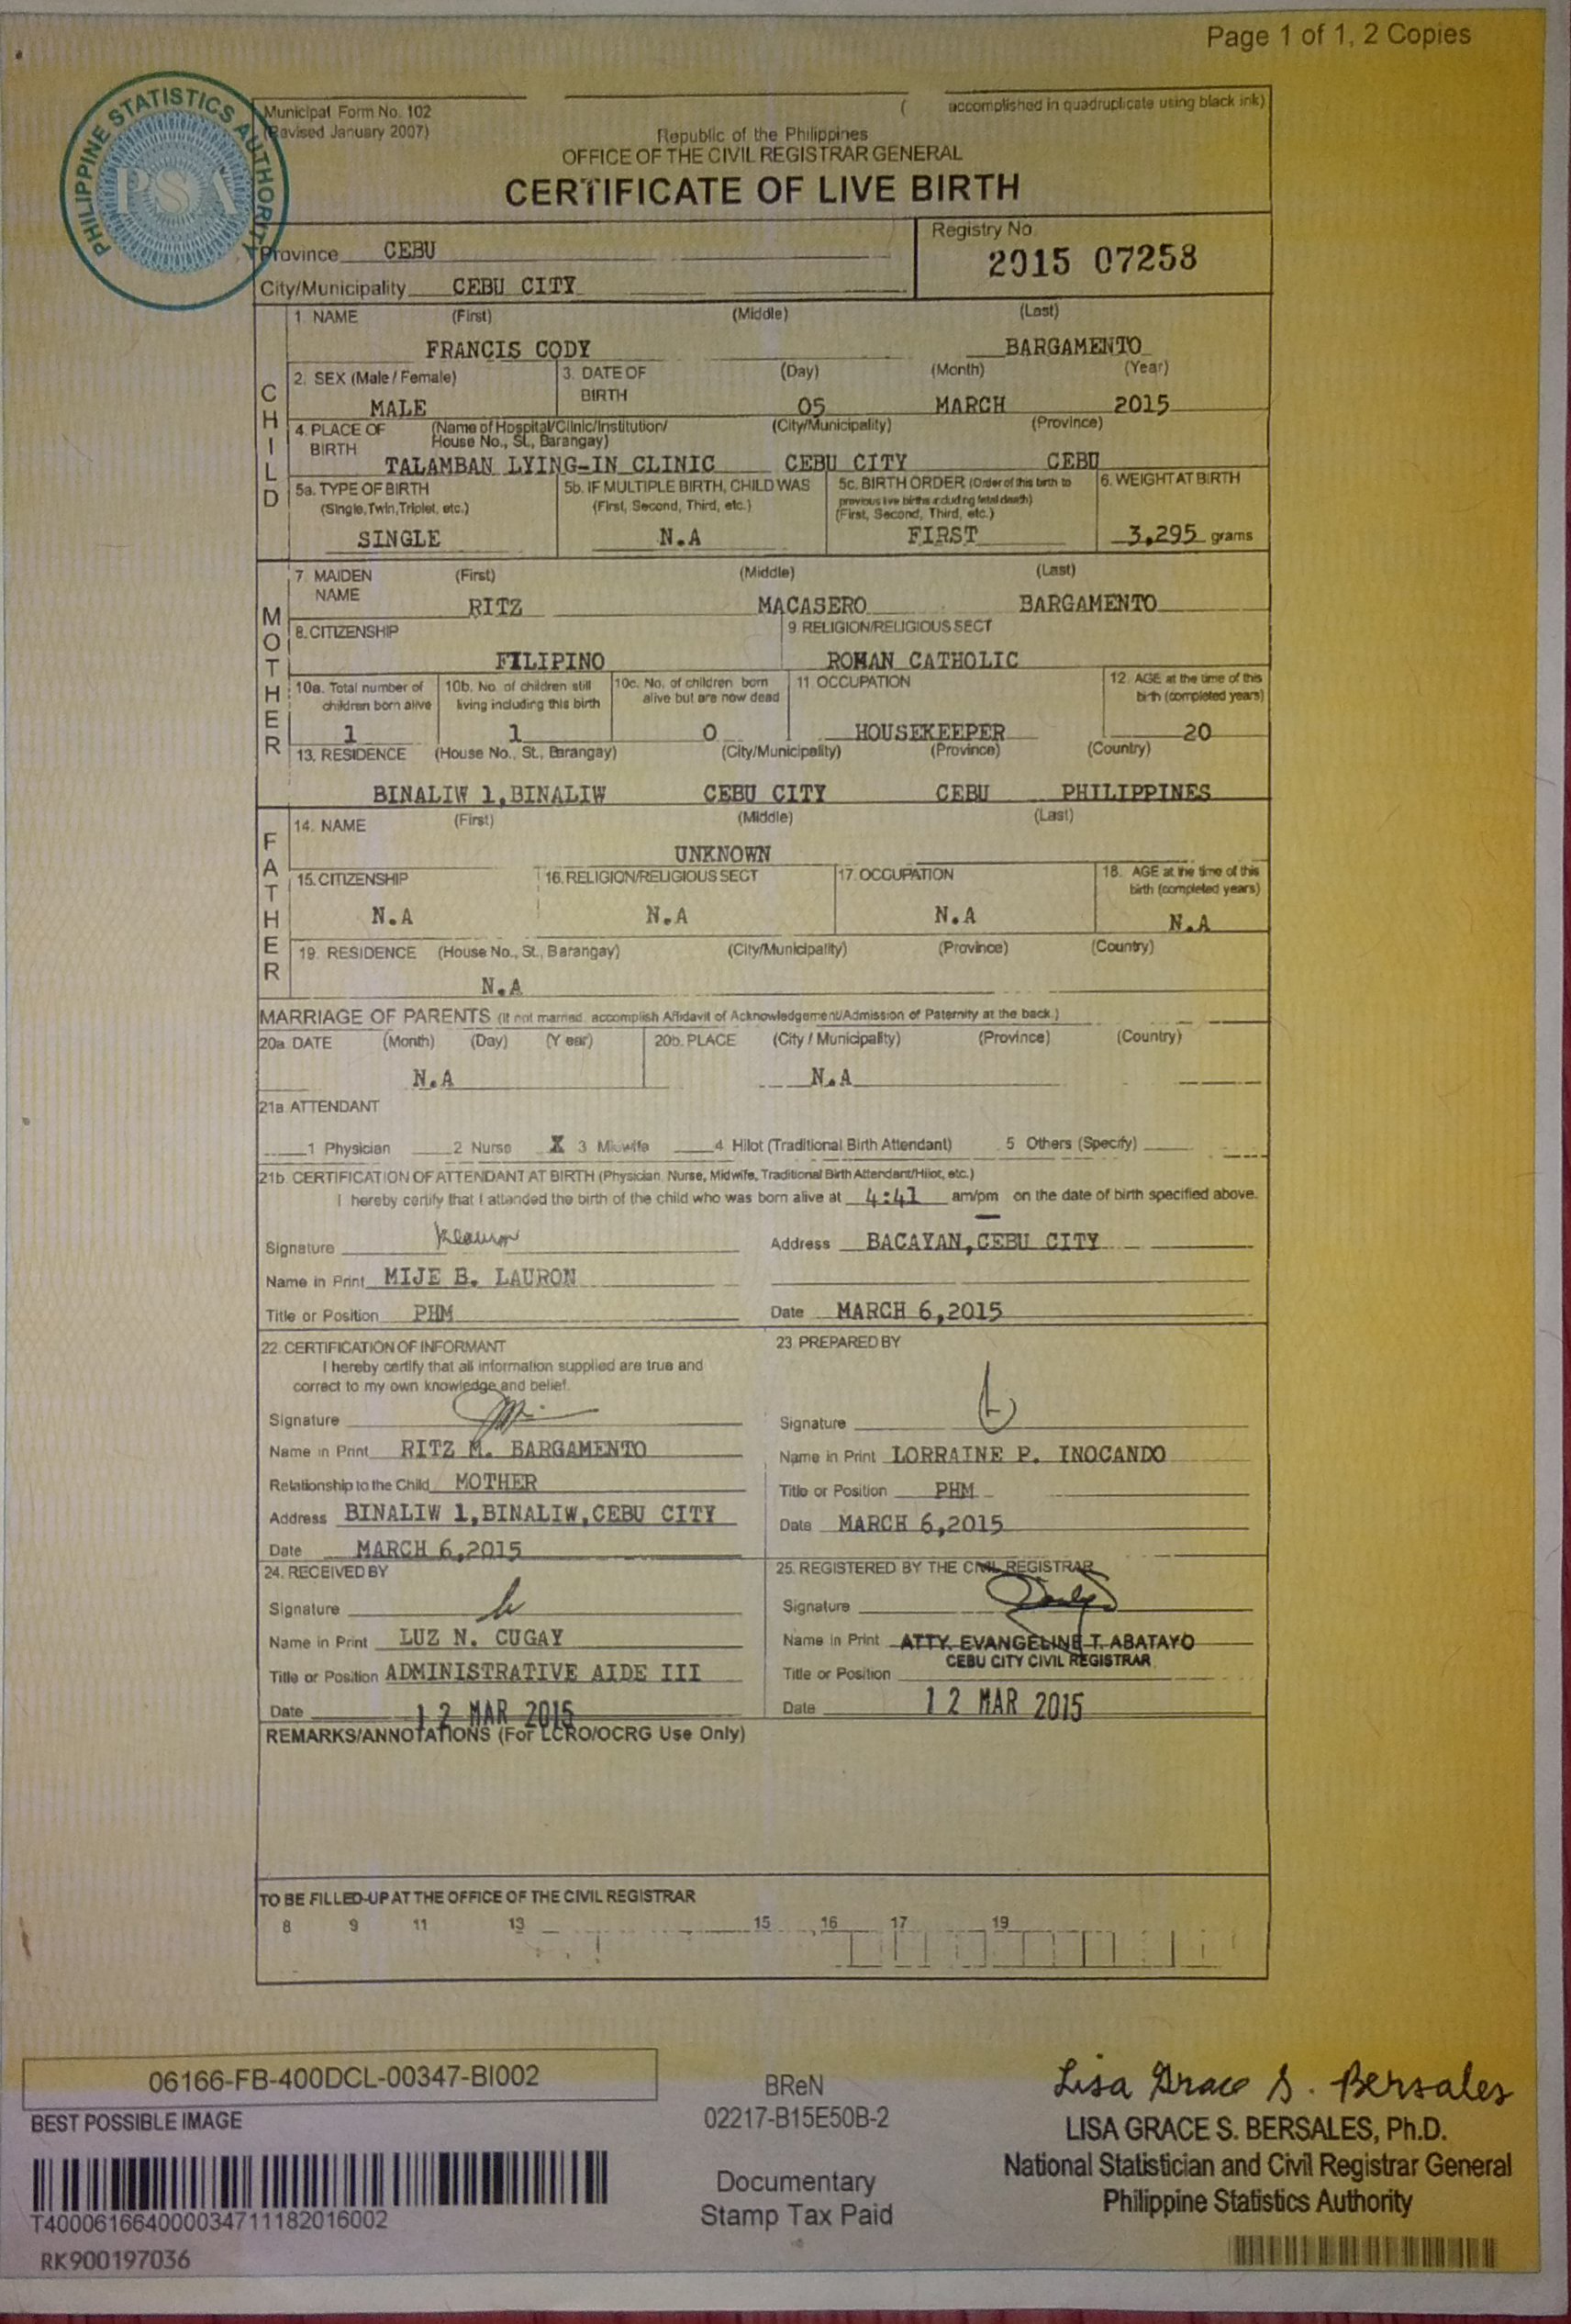 Page 1 of 1, 2 Copies
PHILIPPINE STATISTICS AUTHORITY
PSA
Municipal Form No. 102 ( accomplished in quadruplicate using black ink)
(Revised January 2007)
Republic of the Philippines
OFFICE OF THE CIVIL REGISTRAR GENERAL
CERTIFICATE OF LIVE BIRTH
Province CEBU
City/Municipality CEBU CITY
Registry No.
2015 07258
CHILD
1. NAME (First) (Middle) (Last)
FRANCIS CODY BARGAMENTO
2. SEX (Male / Female) 3. DATE OF BIRTH (Day) (Month) (Year)
MALE 05 MARCH 2015
4. PLACE OF BIRTH (Name of Hospital/Clinic/Institution/ House No., St., Barangay) (City/Municipality) (Province)
TALAMBAN LYING-IN CLINIC CEBU CITY CEBU
5a. TYPE OF BIRTH (Single, Twin, Triplet, etc.)
SINGLE
5b. IF MULTIPLE BIRTH, CHILD WAS (First, Second, Third, etc.)
N.A
5c. BIRTH ORDER (Order of this birth to previous live births including fetal death) (First, Second, Third, etc.)
FIRST
6. WEIGHT AT BIRTH
3,295 grams
MOTHER
7. MAIDEN NAME (First) (Middle) (Last)
RITZ MACASERO BARGAMENTO
8. CITIZENSHIP 9. RELIGION/RELIGIOUS SECT
FILIPINO ROMAN CATHOLIC
10a. Total number of children born alive
1
10b. No. of children still living including this birth
1
10c. No. of children born alive but are now dead
0
11 OCCUPATION
HOUSEKEEPER
12. AGE at the time of this birth (completed years)
20
13. RESIDENCE (House No., St., Barangay) (City/Municipality) (Province) (Country)
BINALIW 1,BINALIW CEBU CITY CEBU PHILIPPINES
FATHER
14. NAME (First) (Middle) (Last)
UNKNOWN
15. CITIZENSHIP 16. RELIGION/RELIGIOUS SECT 17. OCCUPATION 18. AGE at the time of this birth (completed years)
N.A N.A N.A N.A
19. RESIDENCE (House No., St., Barangay) (City/Municipality) (Province) (Country)
N.A
MARRIAGE OF PARENTS (If not married, accomplish Affidavit of Acknowledgement/Admission of Paternity at the back.)
20a. DATE (Month) (Day) (Year) 20b. PLACE (City / Municipality) (Province) (Country)
N.A N.A
21a. ATTENDANT
1 Physician 2 Nurse X 3 Midwife 4 Hilot (Traditional Birth Attendant) 5 Others (Specify)
21b. CERTIFICATION OF ATTENDANT AT BIRTH (Physician, Nurse, Midwife, Traditional Birth Attendant/Hilot, etc.)
I hereby certify that I attended the birth of the child who was born alive at 4:41 am/pm on the date of birth specified above.
Signature Address BACAYAN,CEBU CITY
Name in Print MIJE B. LAURON
Title or Position PHM Date MARCH 6,2015
22. CERTIFICATION OF INFORMANT
I hereby certify that all information supplied are true and
correct to my own knowledge and belief.
Signature
Name in Print RITZ M. BARGAMENTO
Relationship to the Child MOTHER
Address BINALIW 1,BINALIW,CEBU CITY
Date MARCH 6,2015
23. PREPARED BY
Signature
Name in Print LORRAINE P. INOCANDO
Title or Position PHM
Date MARCH 6,2015
24. RECEIVED BY
Signature
Name in Print LUZ N. CUGAY
Title or Position ADMINISTRATIVE AIDE III
Date 12 MAR 2015
25. REGISTERED BY THE CIVIL REGISTRAR
Signature
Name in Print ATTY. EVANGELINE T. ABATAYO
CEBU CITY CIVIL REGISTRAR
Title or Position
Date 12 MAR 2015
REMARKS/ANNOTATIONS (For LCRO/OCRG Use Only)
TO BE FILLED-UP AT THE OFFICE OF THE CIVIL REGISTRAR
8 9 11 13 15 16 17 19
06166-FB-400DCL-00347-BI002
BEST POSSIBLE IMAGE
T400061664000034711182016002
RK900197036
BReN
02217-B15E50B-2
Documentary
Stamp Tax Paid
Lisa Grace S. Bersales
LISA GRACE S. BERSALES, Ph.D.
National Statistician and Civil Registrar General
Philippine Statistics Authority